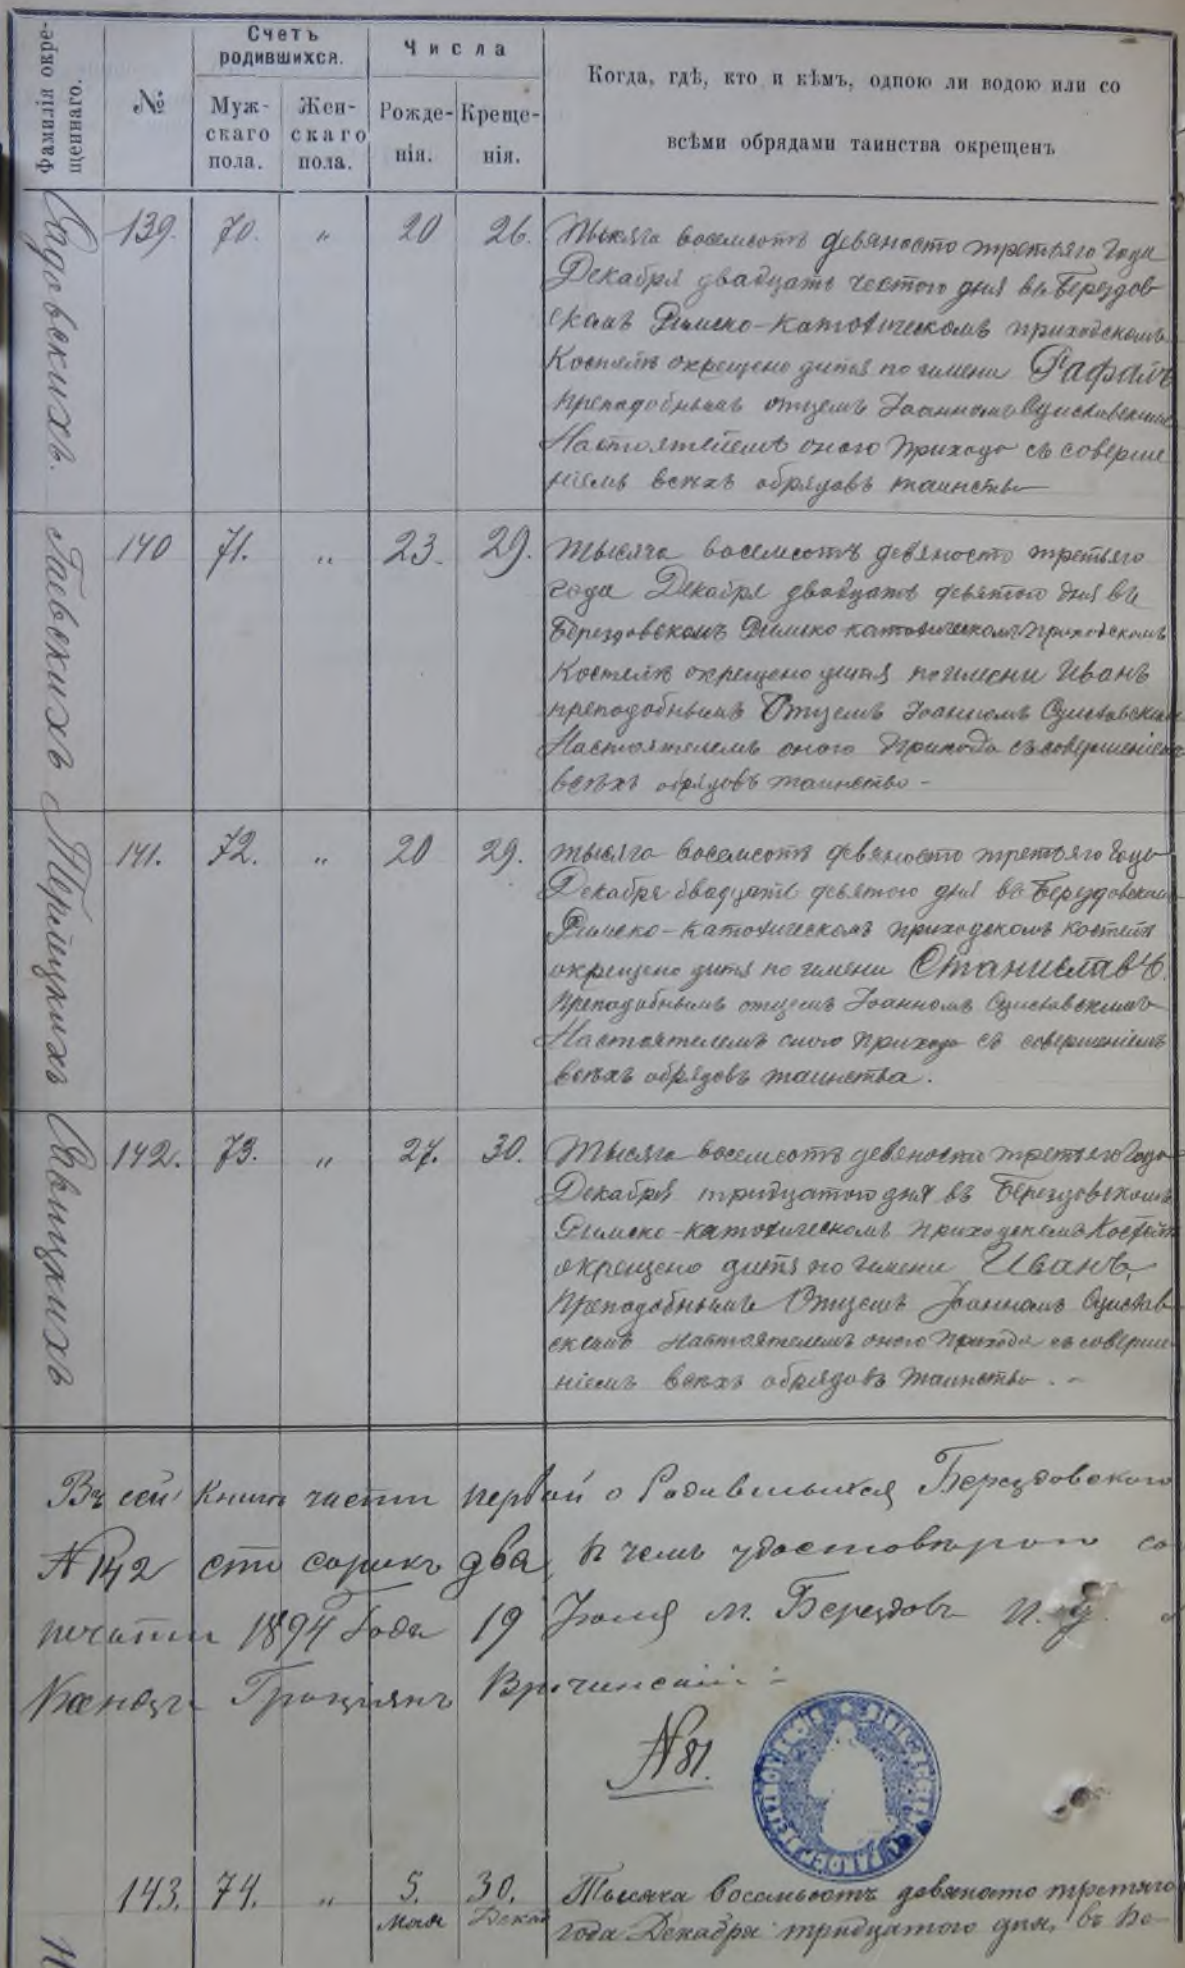 Фамилія окре-
щеннаго.
№
Счетъ
родившихся.
Муж-
скаго
пола.
Жен-
скаго
пола.
Числа
Рожде-
нія.
Креще-
нія.
Когда, гдѣ, кто и кѣмъ, одною ли водою или со
всѣми обрядами таинства окрещенъ
Садовскихъ.
139. 70. " 20 26.
Тысяча восемсотъ девяносто третьяго года
Декабря двадцать шестого дня въ Берездов-
скомъ Римско-католическомъ приходскомъ
Костелѣ окрещено дитя по имени Рафалъ
преподобнымъ отцемъ Іоанномъ
Настоятелемъ оного прихода съ соверше
ніемъ всѣхъ обрядовъ таинства
Гаевскихъ
140 71. " 23. 29.
Тысяча восемсотъ девяносто третьяго
года Декабря двадцать девятого дня въ
Берездовскомъ Римско католическомъ приходскомъ
Костелѣ окрещено дитя по имени Иванъ
преподобнымъ Отцемъ Іоанномъ
Настоятелемъ оного прихода съ совершеніемъ
всѣхъ обрядовъ таинства -
141. 72. " 20 29.
тысяча восемсотъ девяносто третьяго года
Декабря двадцать девятого дня въ Берездовскомъ
Римско-католическомъ приходскомъ костелѣ
окрещено дитя по имени Станиславъ
преподобнымъ отцемъ Іоанномъ
Настоятелемъ оного прихода съ совершеніемъ
всѣхъ обрядовъ таинства.
Савицкихъ
142. 73. " 27. 30.
Тысяча восемсотъ девяносто третьяго года
Декабря тридцатого дня въ Берездовскомъ
Римско-католическомъ приходскомъ Костелѣ
окрещено дитя по имени Иванъ,
преподобнымъ Отцемъ Іоанномъ
скимъ Настоятелемъ оного прихода съ соверше-
ніемъ всѣхъ обрядовъ таинства. -
Въ сей книгѣ части первой о Родившихся Берездовского
№ 142 сто сорокъ два, въ чемъ удостовѣряю со
печати 1894 Года 19 Іюля м. Берездовъ
Ксендзъ Граціянъ
№ 81.
143. 74. " 5. мая 30. Декаб
Тысяча восемьсотъ девяносто третяго
года Декабря тридцатого дня, въ Бе-